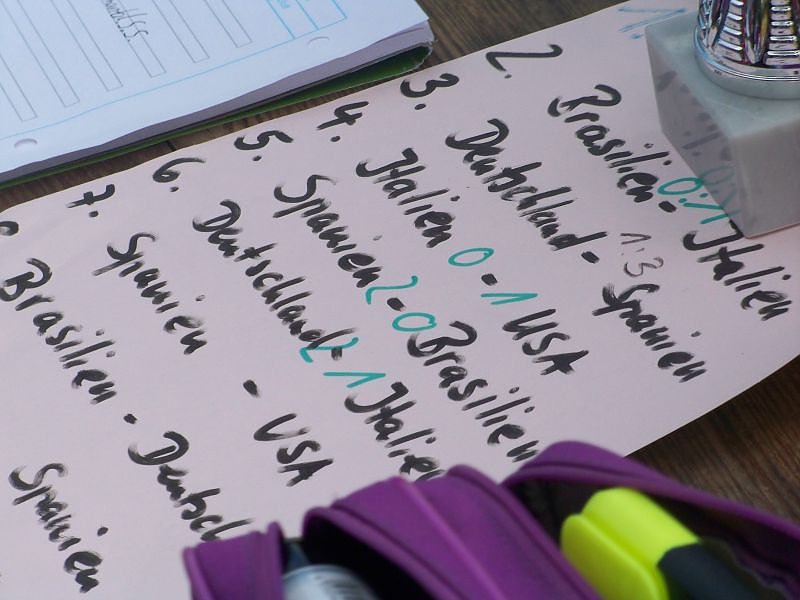 2. Brasilien 0:1 Italien
3. Deutschland - 1:3 Spanien
4. Italien 0 - 1 USA
5. Spanien 2 - 0 Brasilien
6. Deutschland 2 1 Italien
7. Spanien - USA
Brasilien - Deutsch
Spanien